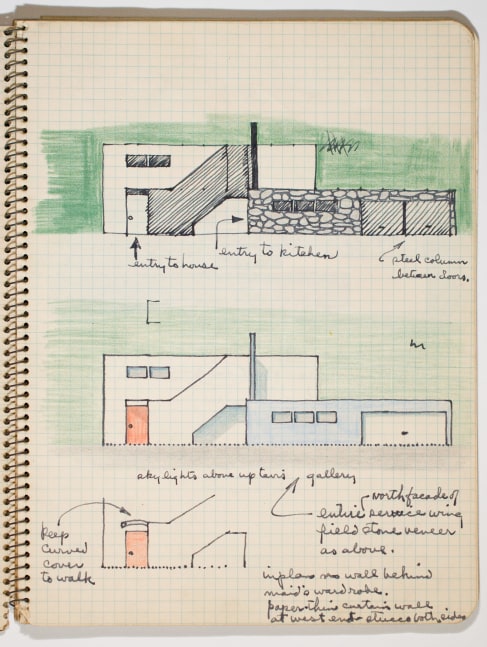 entry to house
entry to kitchen
steel column
between doors.
sky lights above upstairs gallery
north facade of
entire service wing
field stone veneer
as above.
keep
curved
cover
to walk
in plan no wall behind
maid's wardrobe.
paper thin curtain wall
at west end stucco both sides